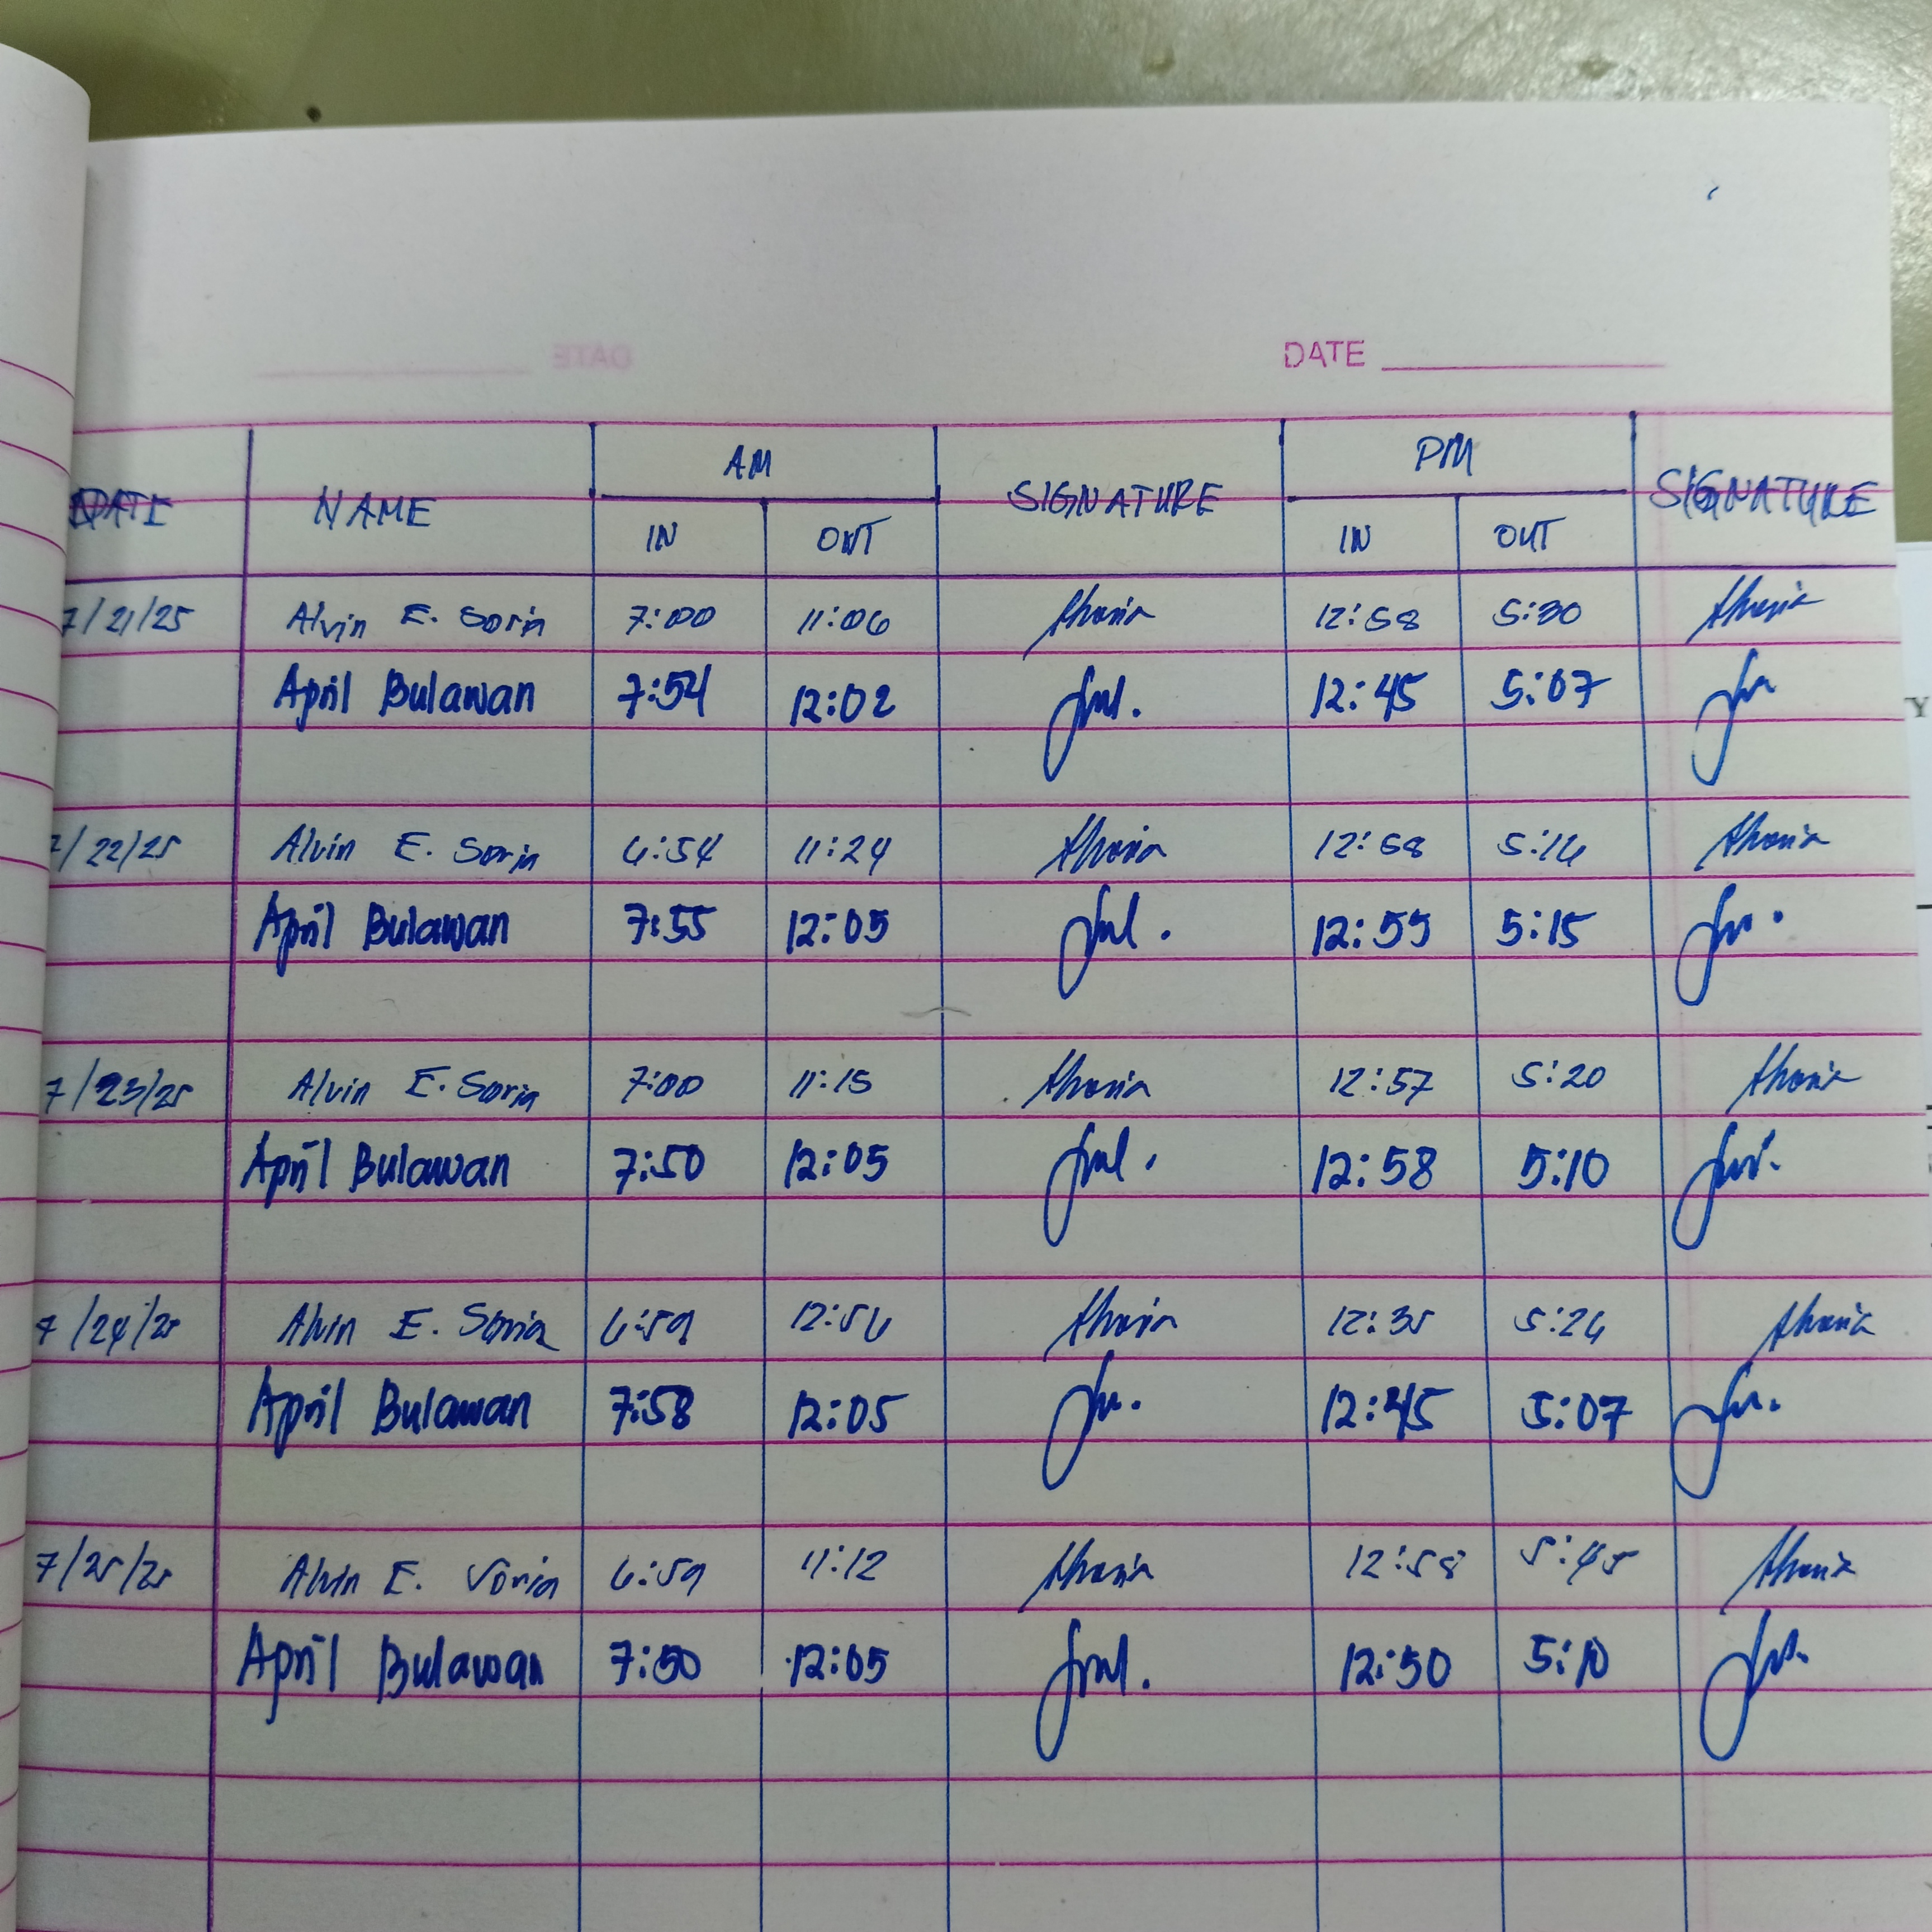 DATE
AM PM
DATE NAME SIGNATURE SIGNATURE
IN OUT IN OUT
7/21/25 Alvin E. Soria 7:00 11:06 12:58 5:30
April Bulawan 7:54 12:02 12:45 5:07
7/22/25 Alvin E. Soria 6:54 11:24 12:58 5:16
April Bulawan 7:55 12:05 12:55 5:15
7/23/25 Alvin E. Soria 7:00 11:15 12:57 5:20
April Bulawan 7:50 12:05 12:58 5:10
7/24/25 Alvin E. Soria 6:59 12:56 12:35 5:26
April Bulawan 7:58 12:05 12:45 5:07
7/25/25 Alvin E. Soria 6:59 11:12 12:58 5:45
April Bulawan 7:50 12:05 12:50 5:10